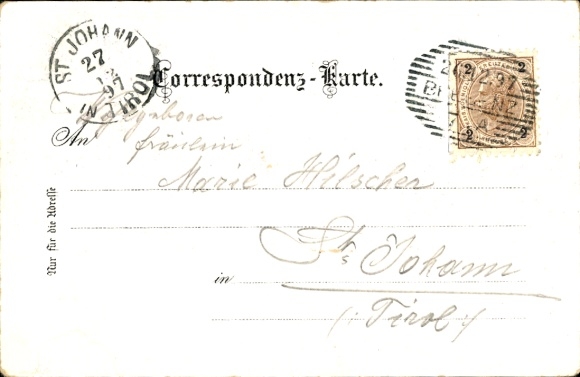 ST. JOHANN
27
12
97
IN TIROL
Correspondenz-Karte.
27/12.97
2
2
2
2
An
fräulein
Marie Hilscher
St. Johann
in
(:Tirol:)
Nur für die Adresse